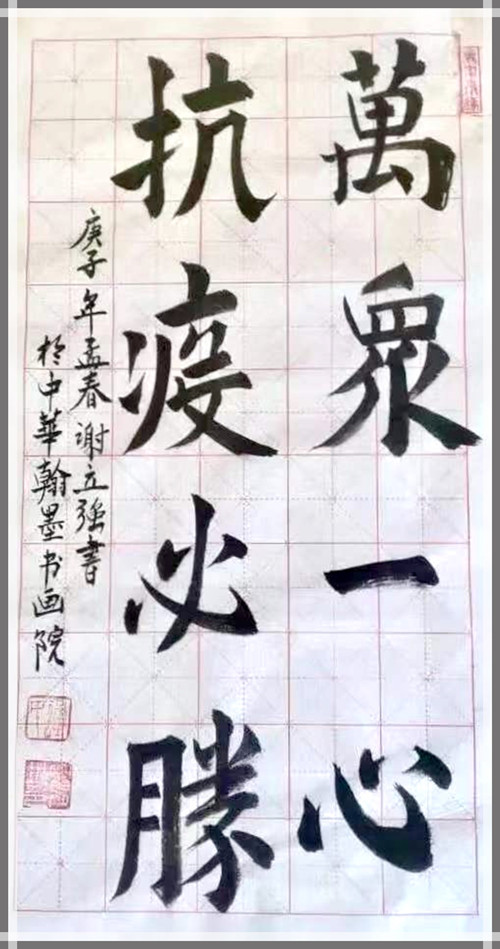 萬眾一心
抗疫必勝
庚子年孟春谢立强書
於中華翰墨书画院